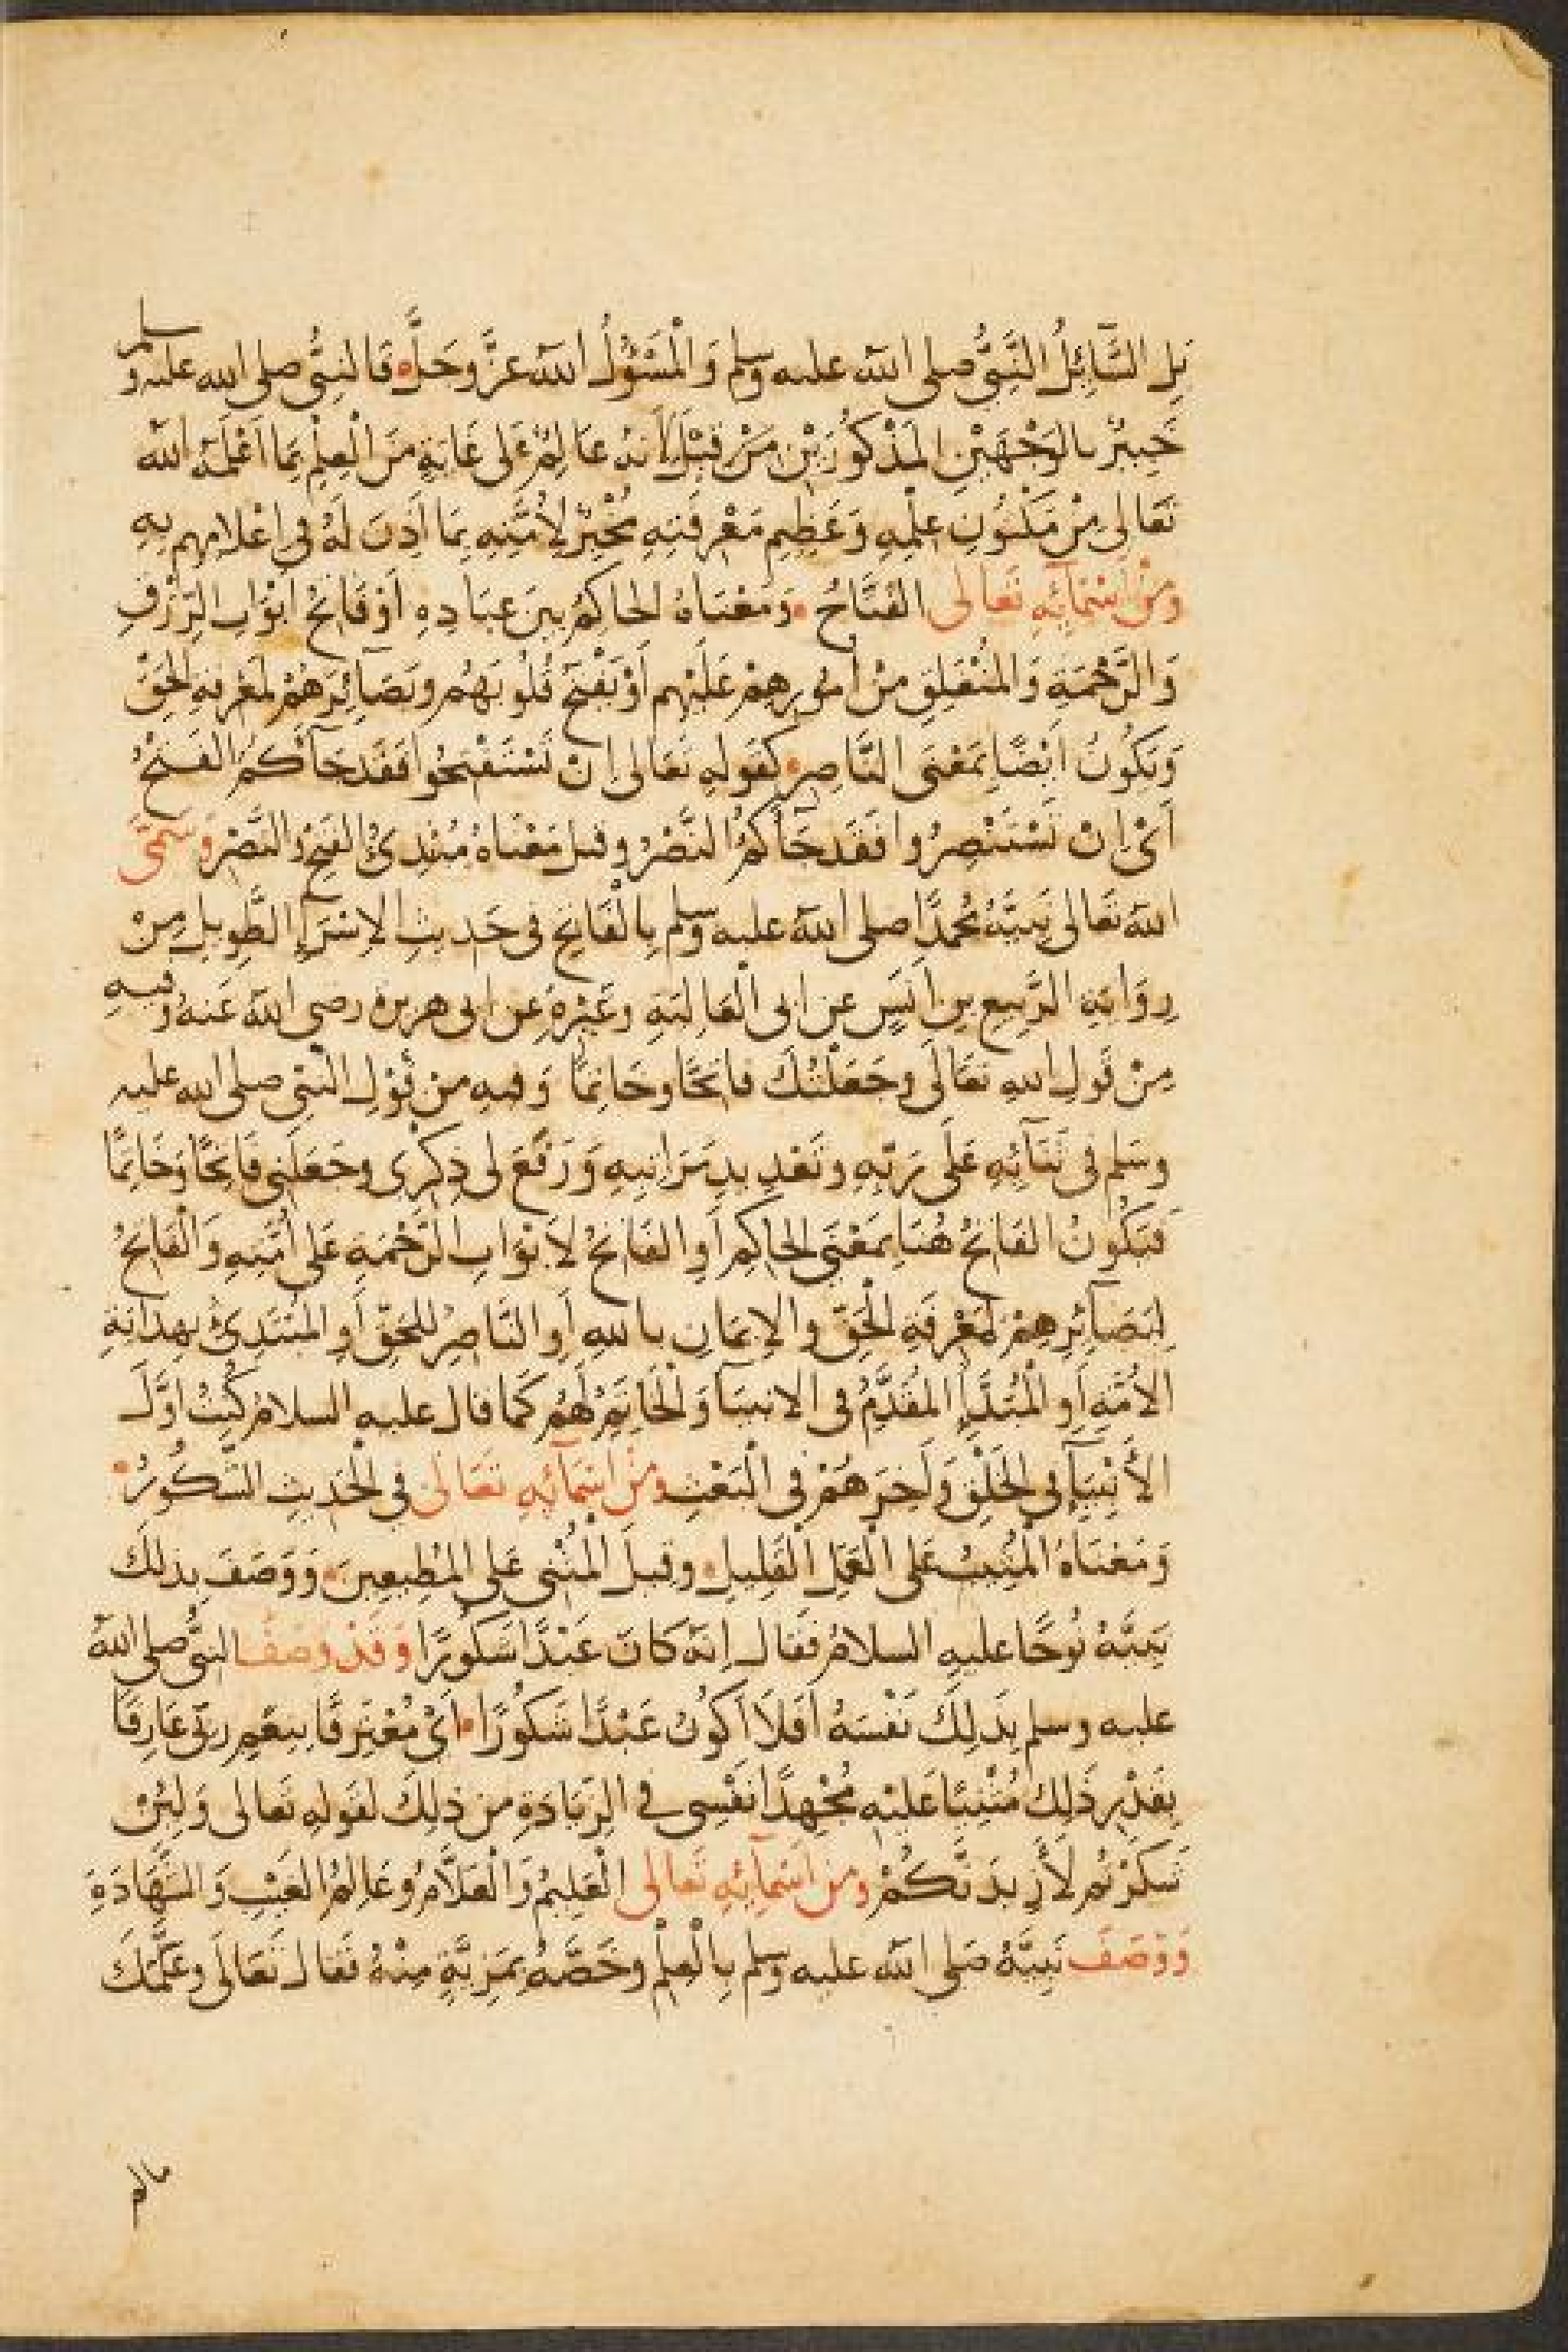 بَلِ السَّآئِلُ النَّبِىُّ صلى الله عليه وسلم وَالْمَسْؤُلُ اللهُ عزَّ وجَلَّ قالنبىُّ صلى الله عليه وسلم
خَبِيرٌ بالوَجْهَيْنِ المَذْكُورَيْنِ مِنْ قبْلُ لأَنهُ عَالِمٌ عَلى غَايَةٍ مِنَ الْعِلْمِ بِمَا اَعْلَمَهُ اللهُ
تَعَالى مِنْ مَكْنُونِ عِلْمِهِ وَعَظِيمِ مَعْرِفَتِهِ مُخْبِرٌ لِأُمَّتِهِ بِمَا اَذِنَ لَهُ فى اِعْلَامِهِم بِهِ
وَمِنْ اَسْمَآئِهِ تَعَالى الفَتَّاحُ وَمَعْنَاهُ الحاكِمُ بينَ عِبَادِهِ اَوْ فَاتِحُ اَبْوَابِ الرِّزْقِ
وَالرَّحْمَةِ وَالمُنْغَلِقِ مِنْ اُمُورِهِمْ عَلَيْهِم اَوْ يَفْتَحُ قُلُوبَهُم وبَصَآئِرَهُمْ لمَعْرِفَةِ الحَقِّ
وَيَكُونُ اَيْضًا بِمَعْنَى النَّاصِرِ كقَولِهِ تَعَالى اِنْ تَسْتَفْتِحُوا فَقَد جَآكُمُ الفَتْحُ
اَىْ اِنْ تَسْتَنْصِرُوا فَقَد جَآكُمُ النَّصْرُ وقيل مَعْنَاهُ مُبْتَدِئُ الفَتْحِ وَالنَّصْرِ وَسَمَّى
اللهُ تَعَالى نَبِيَّهُ مُحمدًا صلى اللهُ عليه وسلم بِالْفَاتِحِ فى حَدِيثِ الاِسْرَآءِ الطَّوِيلِ مِنْ
رِوَايَةِ الرَّبيع بنِ اَنَسٍ عن ابى الْعَالِيَةِ وغَيْرِهِ عن ابى هريرة رضى اللهُ عَنهُ وفيهِ
مِنْ قَولِ اللهِ تعَالَى وجَعَلْتُكَ فاتِحًا وخَاتِمًا وَفيهِ مِن قَوْلِ النَّبىِّ صلى الله عليه
وسَلم فى ثَنَآئِهِ عَلَى رَبِّهِ وتَعْدِيدِ مَرَاتِبِهِ وَرَفَعَ لى ذِكْرِى وجَعَلَنِى فَاتِحًا وَخَاتِمًا
فيَكُونُ الفَاتِحُ هُنَا بِمَعْنَى الحاكِمِ اَوِ الفَاتِحُ لِاَبْوَابِ الرَّحْمَةِ عَلى اُمَّتِهِ وَالْفَاتِحُ
لِبَصَآئِرِهِمْ لمَعْرِفَةِ الْحَقِّ والاِيمَانِ بالله اَوِ النَّاصِرُ للحَقِّ اَوِ المُبْتَدِئُ بِهِدَايَةِ
الاُمَّةِ اَوِ الْمُبَدَّأُ المُقَدَّمُ فى الانبيَآ وَالْخَاتِمُ لَهُمْ كَمَا قال عليه السلامُ كُنْتُ اَوَّلَ
الأَنْبِيَآءِ فى الخَلْقِ وَاَخِرَهُمْ فى الْبَعْثِ وَمِنْ اَسْمَآئِهِ تَعَالى فى الْحَدِيثِ الشَّكُورُ
وَمَعْنَاهُ الْمُثِيبُ عَلى الْعَمَلِ الْقَلِيلِ وقيلَ الْمُثْنِى عَلى المُطِيعِينَ وَوَصَفَ بِذلكَ
نَبِيَّهُ نُوحًا عليهِ السلامُ فقَالَ اِنهُ كانَ عَبْدًا شَكُورًا وَقَدْ وَصَفَ النبىُّ صلى اللهُ
عليه وسلم بِذَلِكَ نَفْسَهُ اَفَلَا اَكُونُ عَبْدًا شَكُورًا اَىْ مُعْتَرِفًا بِنِعَمِ رَبِّى عَارِفًا
بِقَدْرِ ذَلِكَ مُثْنِيًا عَليْهِ مُجْهِدًا نَفْسِى فى الزِّيَادَةِ مِن ذلِكَ لقَولِهِ تَعالى وَلَئِنْ
شَكَرْتُم لَأَزِيدَنَّكُمْ وَمِن اَسْمَآئِهِ تَعَالى الْعَلِيمُ وَالْعَلَّامُ وعَالِمُ الغَيْبِ وَالشَّهَادَةِ
وَوَصَفَ نَبِيَّهُ صَلى اللهُ عليه وسلم بِالْعِلْمِ وخَصَّهُ بمَزِيَّةٍ مِنْهُ فقَالَ تَعَالَى وعَلَّمَكَ
مالم